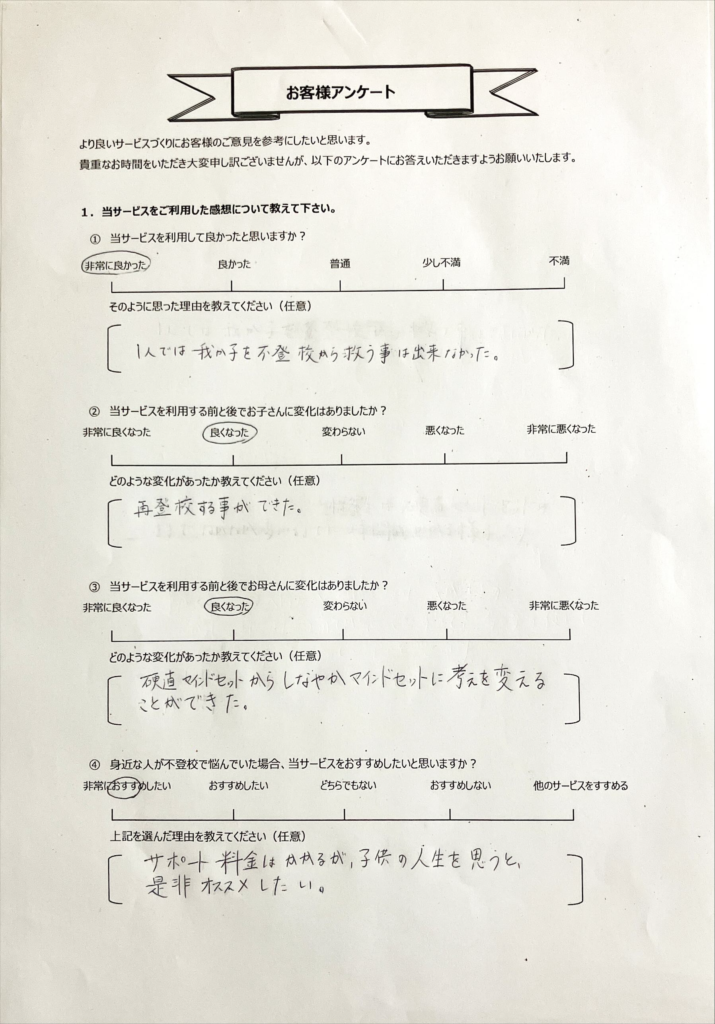 お客様アンケート
より良いサービスづくりにお客様のご意見を参考にしたいと思います。
貴重なお時間をいただき大変申し訳ございませんが、以下のアンケートにお答えいただきますようお願いいたします。
1．当サービスをご利用した感想について教えて下さい。
① 当サービスを利用して良かったと思いますか？
非常に良かった 良かった 普通 少し不満 不満
そのように思った理由を教えてください（任意）
1人では我が子を不登校から救う事は出来なかった。
② 当サービスを利用する前と後でお子さんに変化はありましたか？
非常に良くなった 良くなった 変わらない 悪くなった 非常に悪くなった
どのような変化があったか教えてください（任意）
再登校する事ができた。
③ 当サービスを利用する前と後でお母さんに変化はありましたか？
非常に良くなった 良くなった 変わらない 悪くなった 非常に悪くなった
どのような変化があったか教えてください（任意）
硬直マインドセットからしなやかマインドセットに考えを変える
ことができた。
④ 身近な人が不登校で悩んでいた場合、当サービスをおすすめしたいと思いますか？
非常におすすめしたい おすすめしたい どちらでもない おすすめしない 他のサービスをすすめる
上記を選んだ理由を教えてください（任意）
サポート料金はかかるが、子供の人生を思うと、
是非オススメしたい。